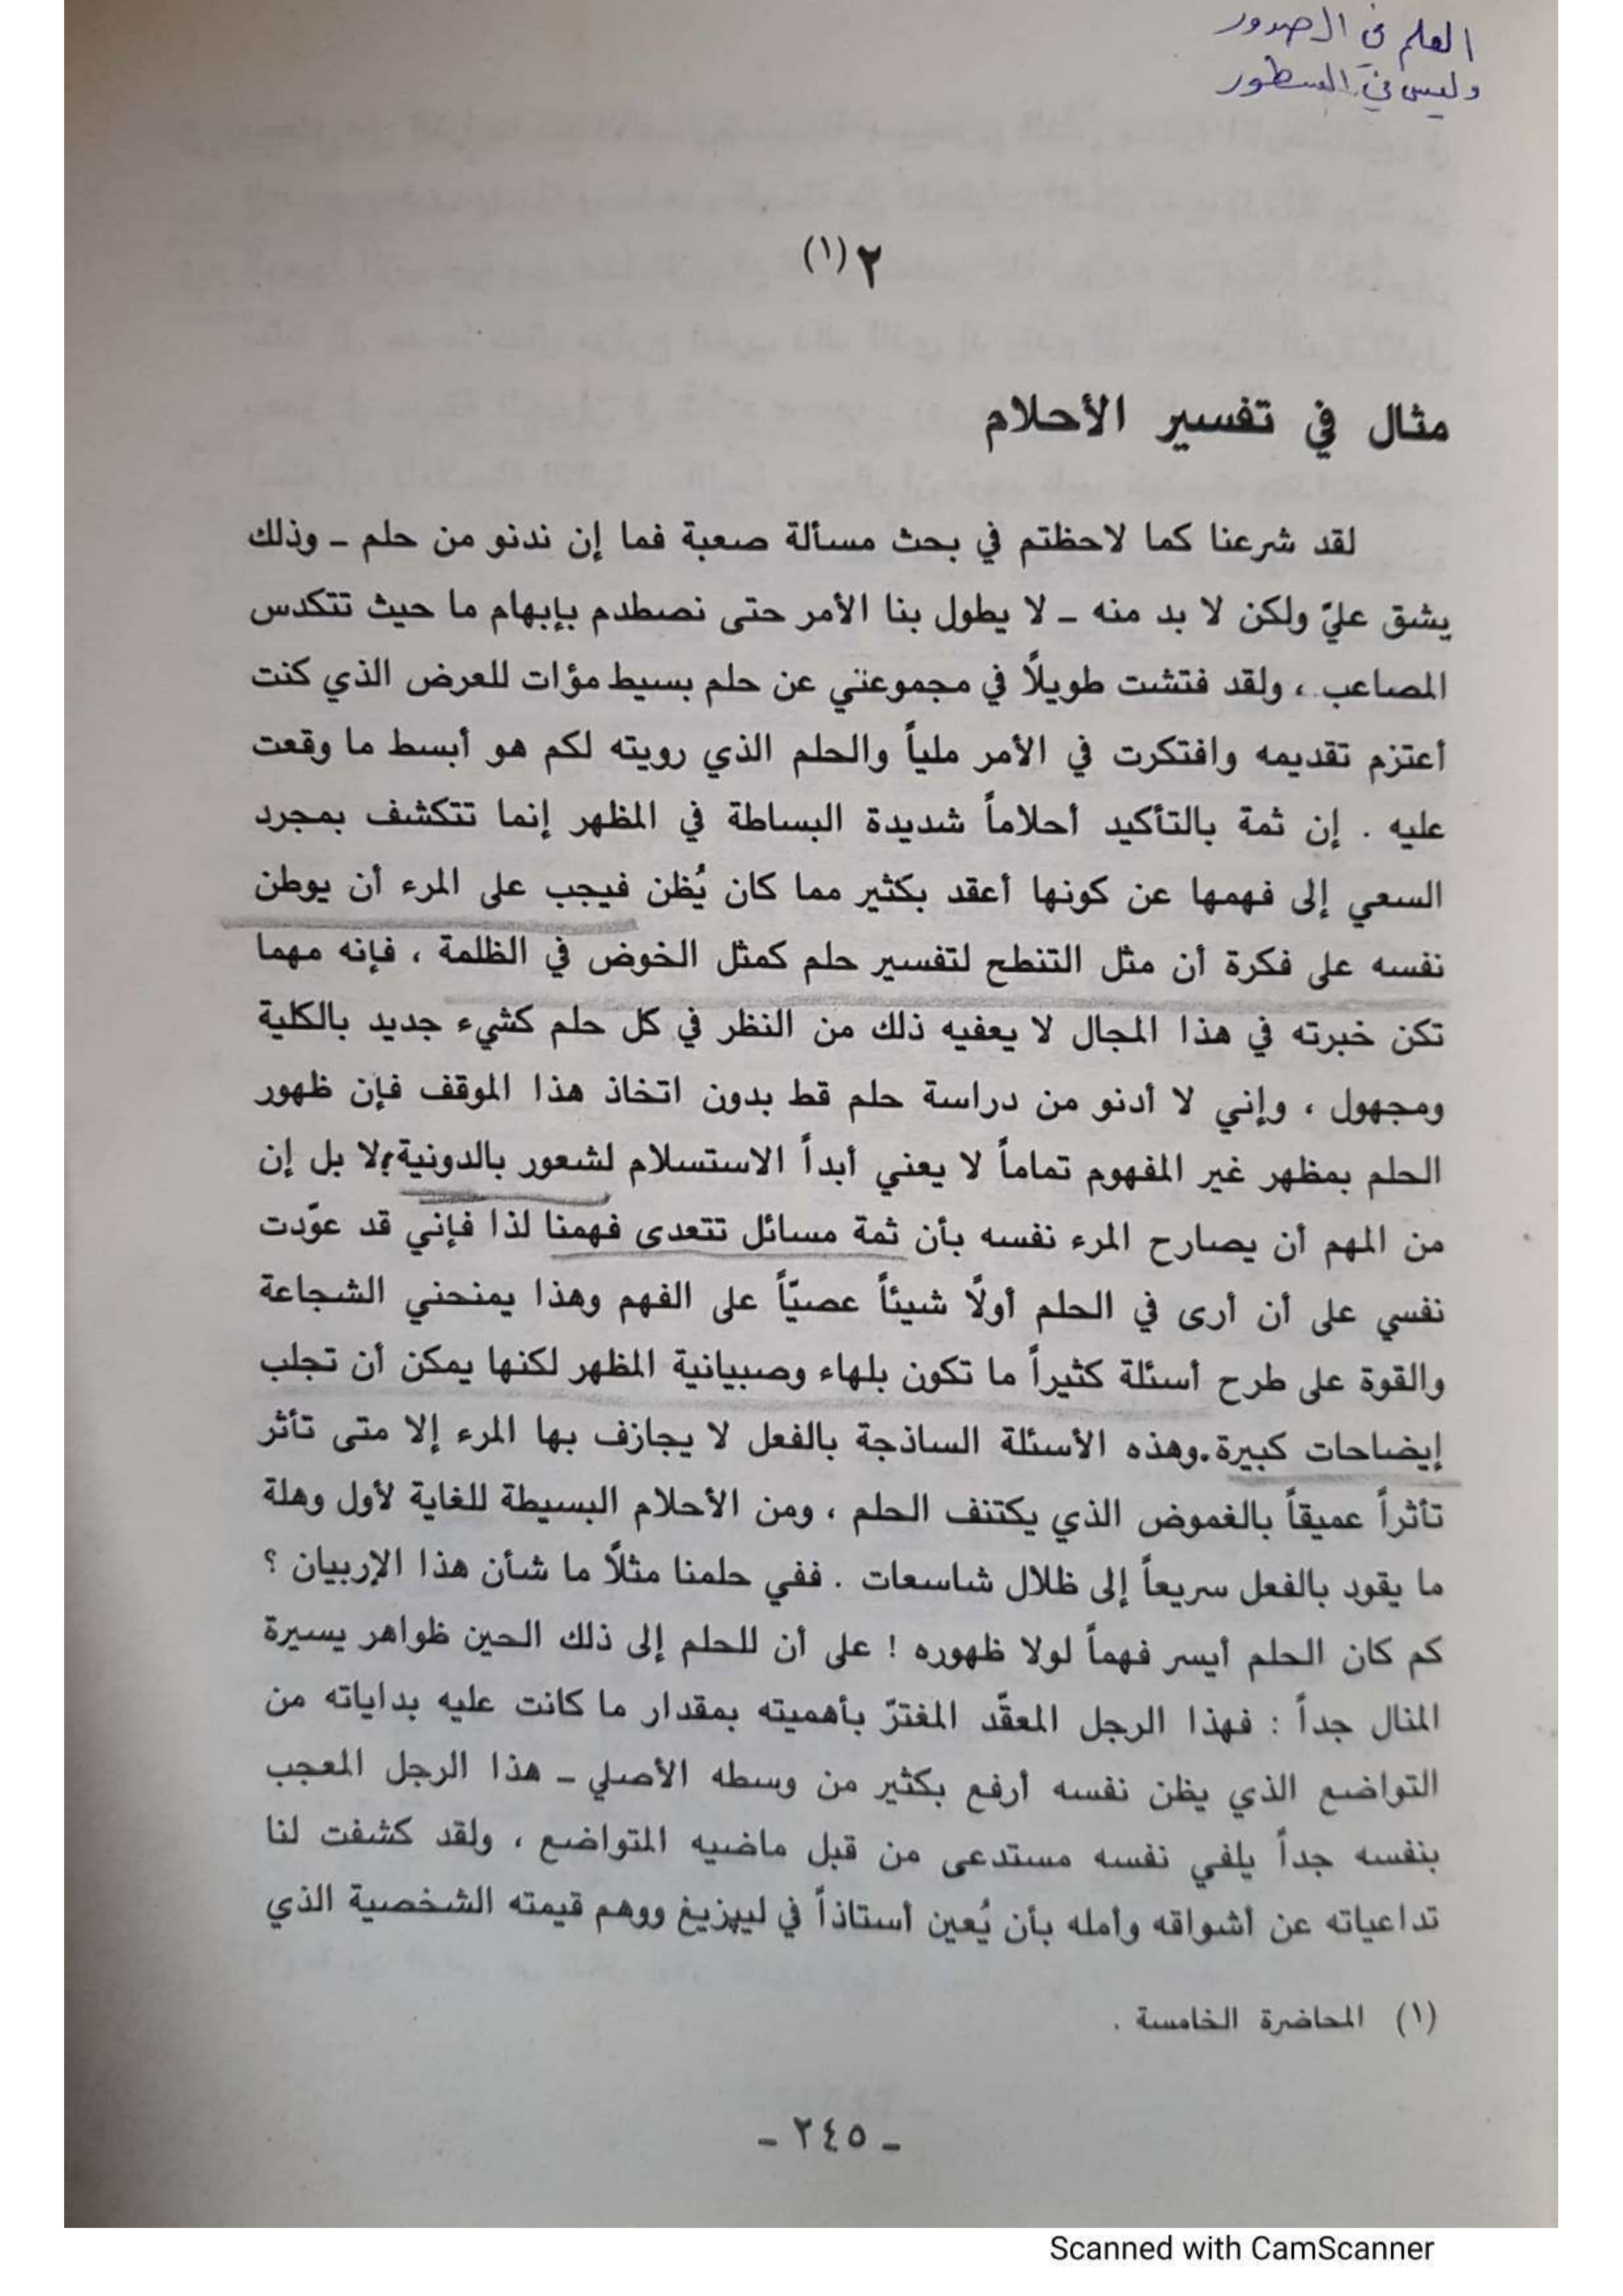 العلم في الصدور
وليس في السطور
٢ (١)
مثال في تفسير الأحلام
لقد شرعنا كما لاحظتم في بحث مسألة صعبة فما إن ندنو من حلم ـ وذلك
يشق عليّ ولكن لا بد منه ـ لا يطول بنا الأمر حتى نصطدم بإبهام ما حيث تتكدس
المصاعب ، ولقد فتشت طويلًا في مجموعتي عن حلم بسيط مؤات للعرض الذي كنت
أعتزم تقديمه وافتكرت في الأمر ملياً والحلم الذي رويته لكم هو أبسط ما وقعت
عليه . إن ثمة بالتأكيد أحلاماً شديدة البساطة في المظهر إنما تتكشف بمجرد
السعي إلى فهمها عن كونها أعقد بكثير مما كان يُظن فيجب على المرء أن يوطن
نفسه على فكرة أن مثل التنطح لتفسير حلم كمثل الخوض في الظلمة ، فإنه مهما
تكن خبرته في هذا المجال لا يعفيه ذلك من النظر في كل حلم كشيء جديد بالكلية
ومجهول ، وإني لا أدنو من دراسة حلم قط بدون اتخاذ هذا الموقف فإن ظهور
الحلم بمظهر غير المفهوم تماماً لا يعني أبداً الاستسلام لشعور بالدونية؟لا بل إن
من المهم أن يصارح المرء نفسه بأن ثمة مسائل تتعدى فهمنا لذا فإني قد عوّدت
نفسي على أن أرى في الحلم أولًا شيئاً عصيّاً على الفهم وهذا يمنحني الشجاعة
والقوة على طرح أسئلة كثيراً ما تكون بلهاء وصبيانية المظهر لكنها يمكن أن تجلب
إيضاحات كبيرة.وهذه الأسئلة الساذجة بالفعل لا يجازف بها المرء إلا متى تأثر
تأثراً عميقاً بالغموض الذي يكتنف الحلم ، ومن الأحلام البسيطة للغاية لأول وهلة
ما يقود بالفعل سريعاً إلى ظلال شاسعات . ففي حلمنا مثلًا ما شأن هذا الإربيان ؟
كم كان الحلم أيسر فهماً لولا ظهوره ! على أن للحلم إلى ذلك الحين ظواهر يسيرة
المنال جداً : فهذا الرجل المعقّد المغترّ بأهميته بمقدار ما كانت عليه بداياته من
التواضع الذي يظن نفسه أرفع بكثير من وسطه الأصلي ـ هذا الرجل المعجب
بنفسه جداً يلفي نفسه مستدعى من قبل ماضيه المتواضع ، ولقد كشفت لنا
تداعياته عن أشواقه وأمله بأن يُعين أستاذاً في ليپزيغ ووهم قيمته الشخصية الذي
(١) المحاضرة الخامسة .
ـ ٢٤٥ ـ
Scanned with CamScanner